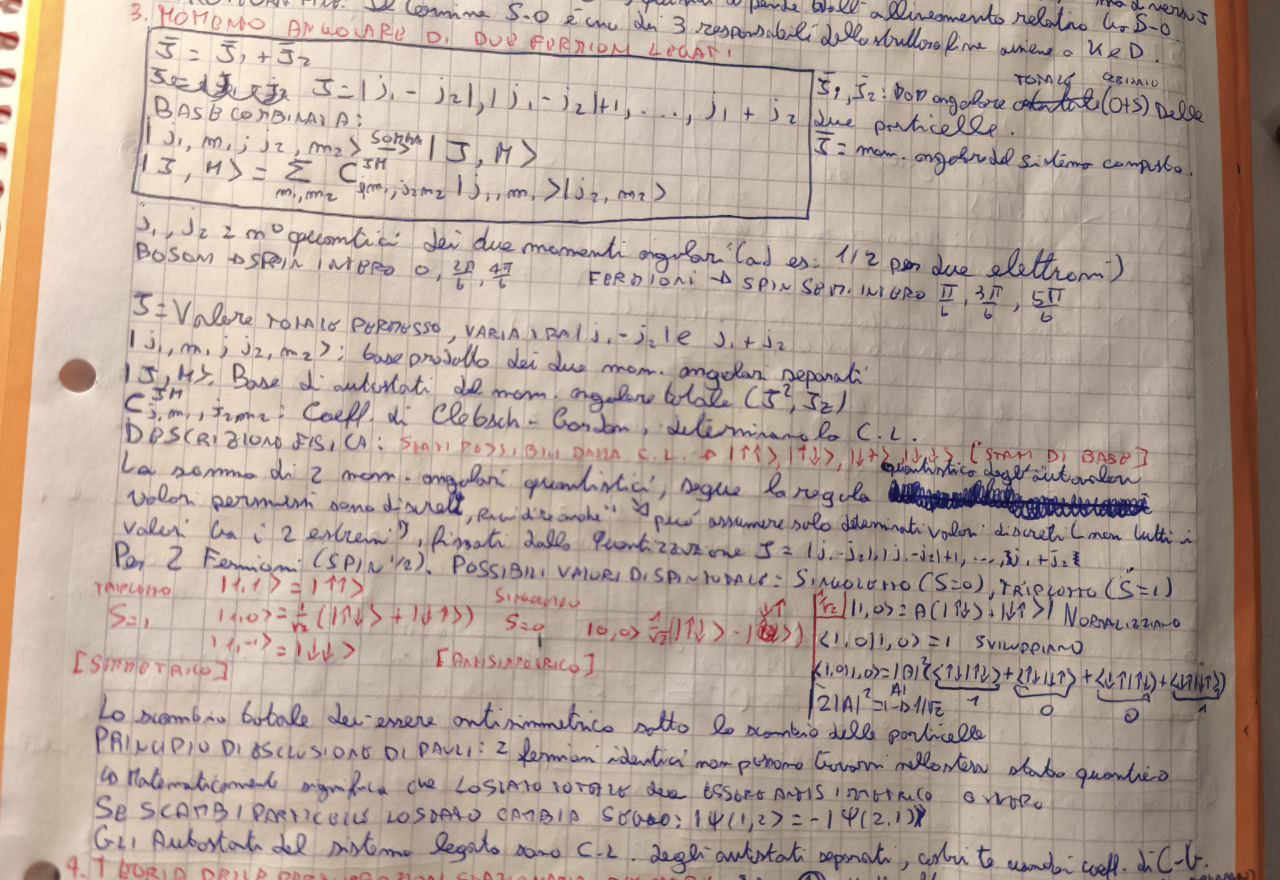 Il termine S-O è uno dei 3 responsabili della struttura fine assieme a K e D.
dall'allineamento relativo tra S-O.
3. MOMENTO ANGOLARE DI DUE FERMIONI LEGATI
J̄ = J̄₁ + J̄₂
J = |j₁ - j₂|, |j₁ - j₂|+1, ..., j₁ + j₂
BASE COMBINATA:
|j₁, m₁; j₂, m₂> SOMMA → |J, M>
|J, M> = Σ_{m₁,m₂} C^{JM}_{j₁m₁,j₂m₂} |j₁, m₁>|j₂, m₂>
J̄₁, J̄₂: mom angolare totale (O+S) delle
due particelle.
J̄ = mom. angolare del sistema composto.
j₁, j₂ = n° quantici dei due momenti angolari (ad es: 1/2 per due elettroni)
BOSONI → SPIN INTERO 0, 2π/6, 4π/6 FERMIONI → SPIN SEMINTERO π/6, 3π/6, 5π/6
J = Valore TOTALE PERMESSO, VARIA TRA |j₁ - j₂| e j₁ + j₂
|j₁, m₁; j₂, m₂>: base prodotto dei due mom. angolari separati
|J, M>: Base di autostati del mom. angolare totale (J², J_z)
C^{JM}_{j₁m₁,j₂m₂}: Coeff. di Clebsch-Gordon, determinano la C.L.
DESCRIZIONE FISICA: STATI POSSIBILI DALLA C.L. → |↑↑>, |↑↓>, |↓↑>, |↓↓> [STATI DI BASE]
La somma di 2 mom. angolari quantistici, segue la regola quantistica degli autovalori
valori permessi sono discreti, può assumere solo determinati valori discreti (non tutti i
valori tra i 2 estremi), fissati dalla quantizzazione J = |j₁-j₂|, |j₁-j₂|+1, ..., j₁+j₂
Per 2 Fermioni (SPIN 1/2). POSSIBILI VALORI DI SPIN TOTALE: SINGOLETTO (S=0), TRIPLETTO (S=1)
TRIPLETTO |1,1> = |↑↑>
S=1 |1,0> = 1/√2 (|↑↓> + |↓↑>)
|1,-1> = |↓↓>
[SIMMETRICO]
SINGOLETTO
S=0 |0,0> 1/√2 (|↑↓> - |↓↑>)
[ANTISIMMETRICO]
1/√2 |1,0> = A(|↑↓> + |↓↑>) NORMALIZZIAMO
<1,0|1,0> = 1 SVILUPPIAMO
<1,0|1,0> = |A|² (<↑↓|↑↓> + <↑↓|↓↑> + <↓↑|↑↓> + <↓↑|↓↑>)
2|A|² = 1 → A = 1/√2 1 0 0 1
Lo scambio totale dev'essere antisimmetrico sotto lo scambio delle particelle
PRINCIPIO DI ESCLUSIONE DI PAULI: 2 fermioni identici non possono trovarsi nello stesso stato quantico
↳ Matematicamente significa che LO STATO TOTALE deve ESSERE ANTISIMMETRICO OVVERO
SE SCAMBI PARTICELLE LO STATO CAMBIA SEGNO: |ψ(1,2> = -|ψ(2,1)>
GLI Autostati del sistema legato sono C.L. degli autostati separati, costruite usando i coeff. di C-G.